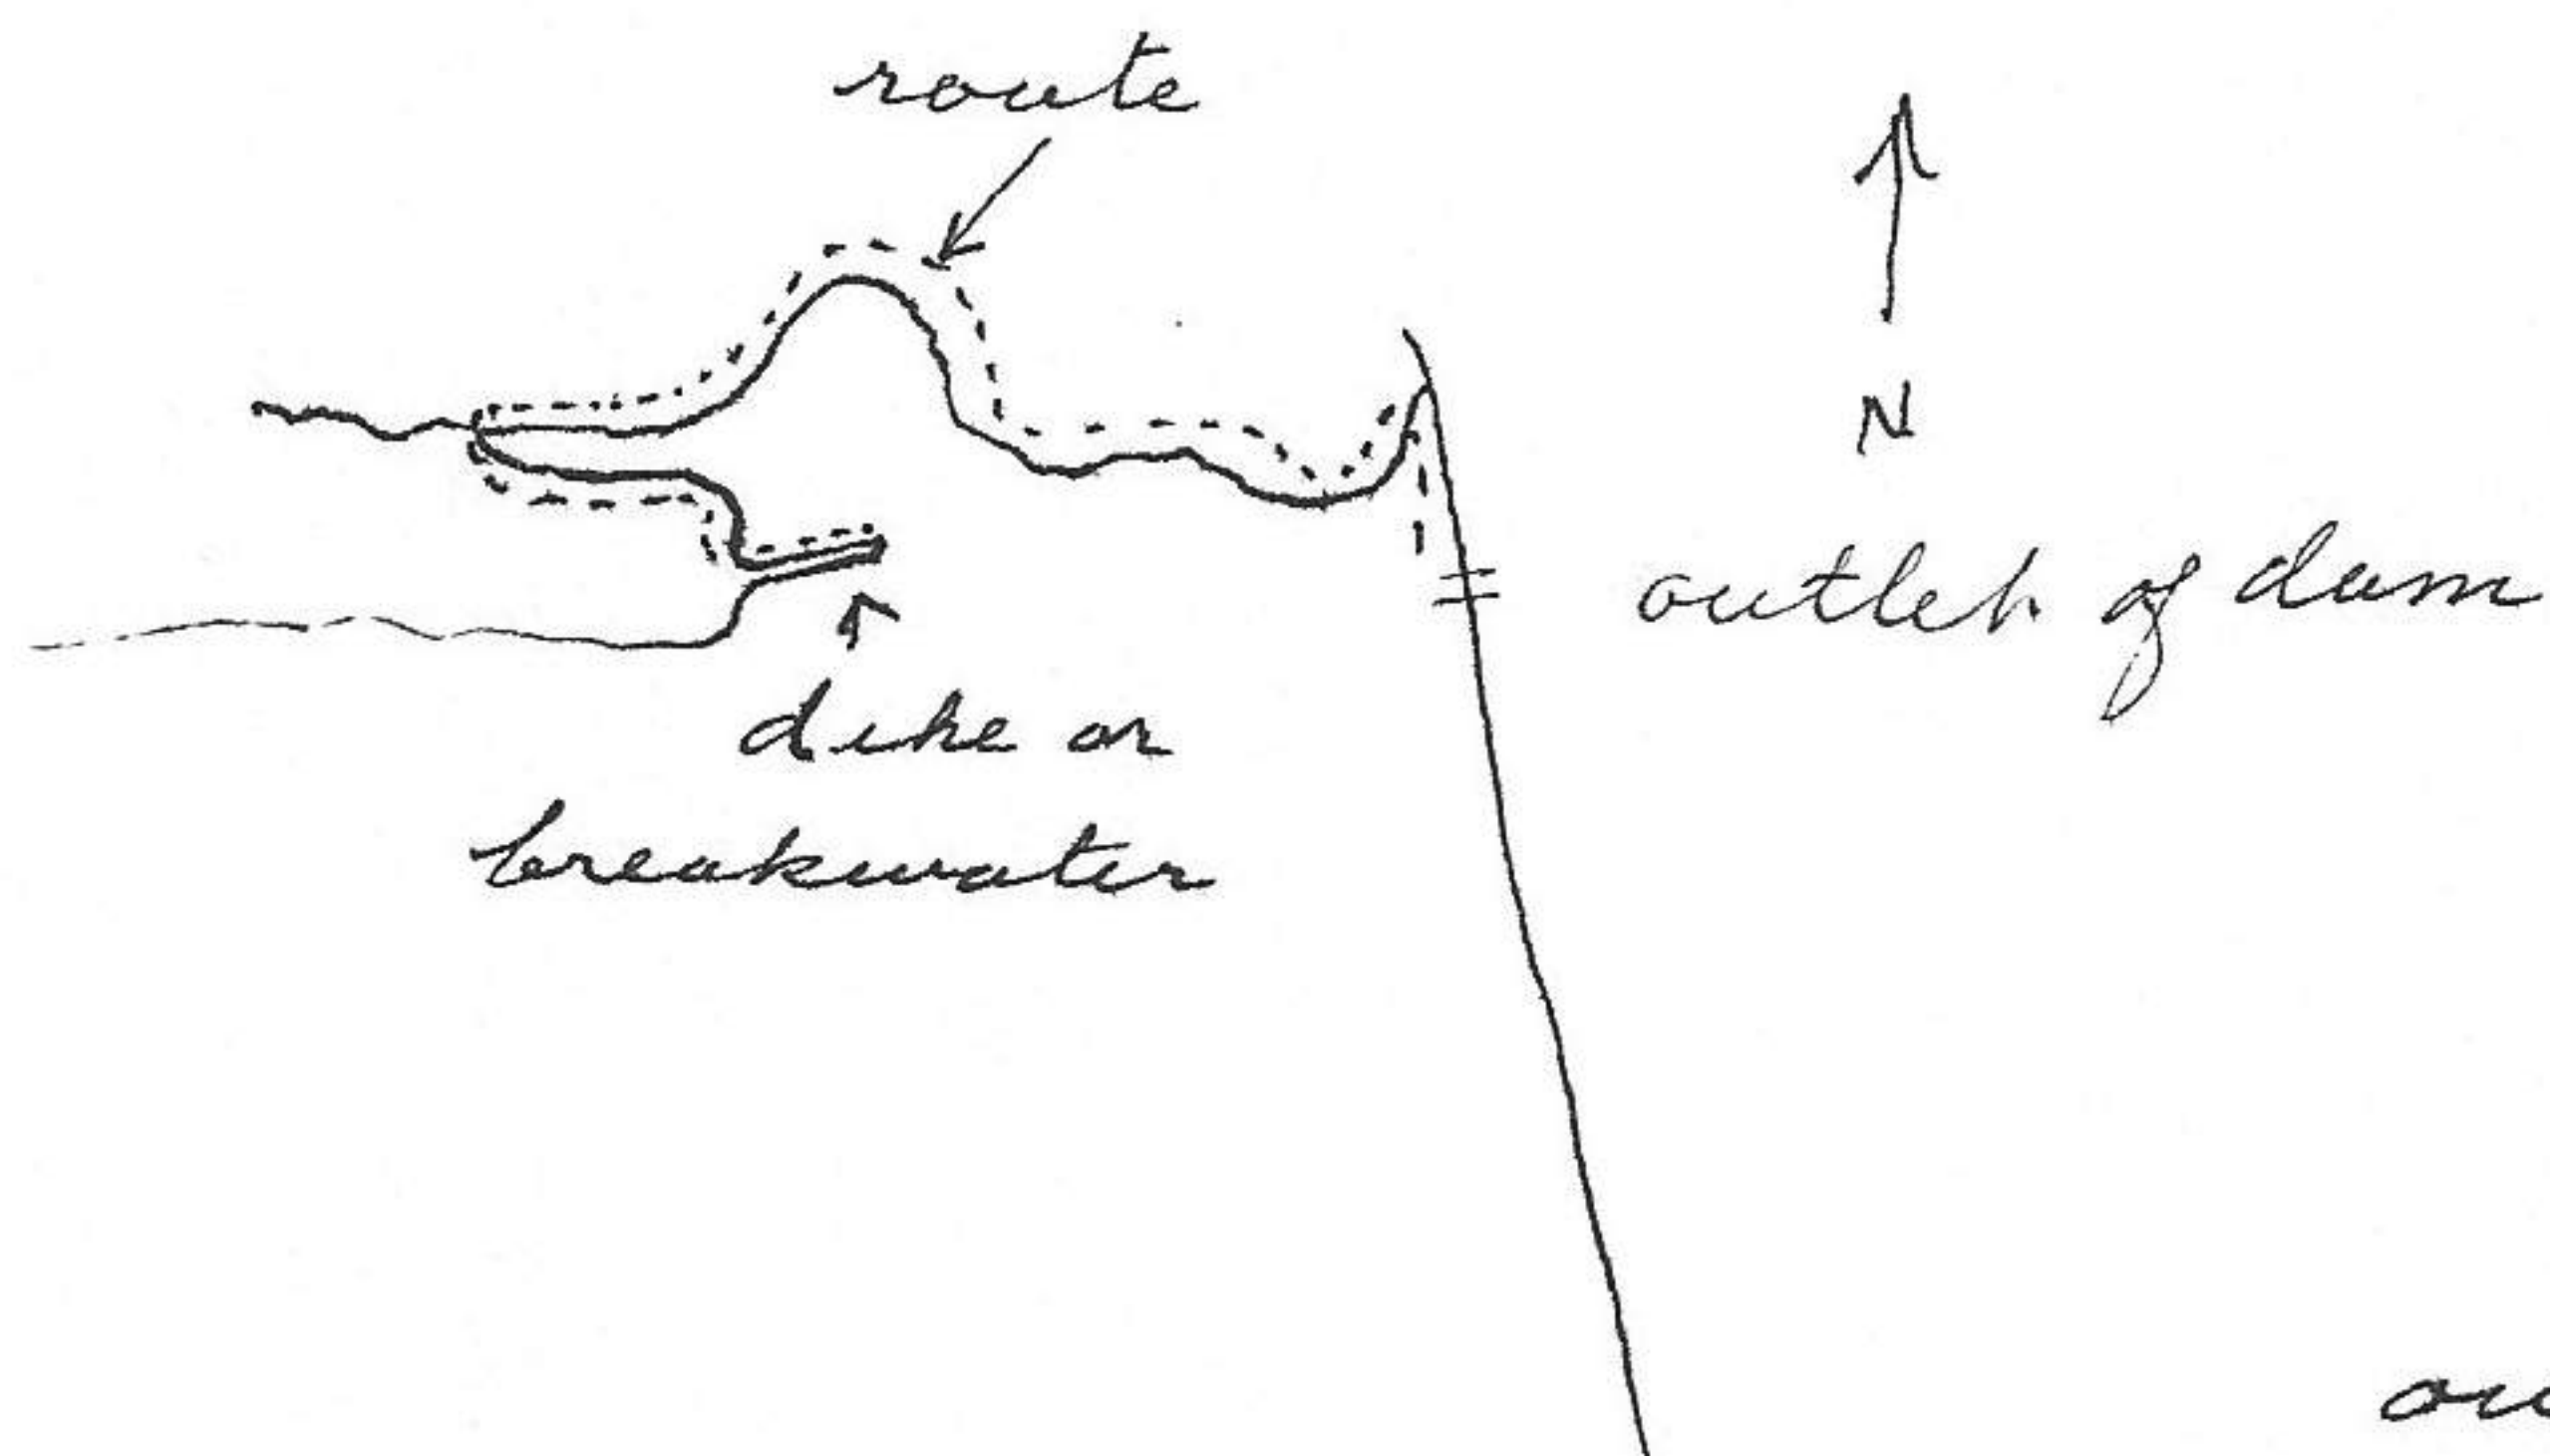 route
N
outlet of dam
dike or
breakwater